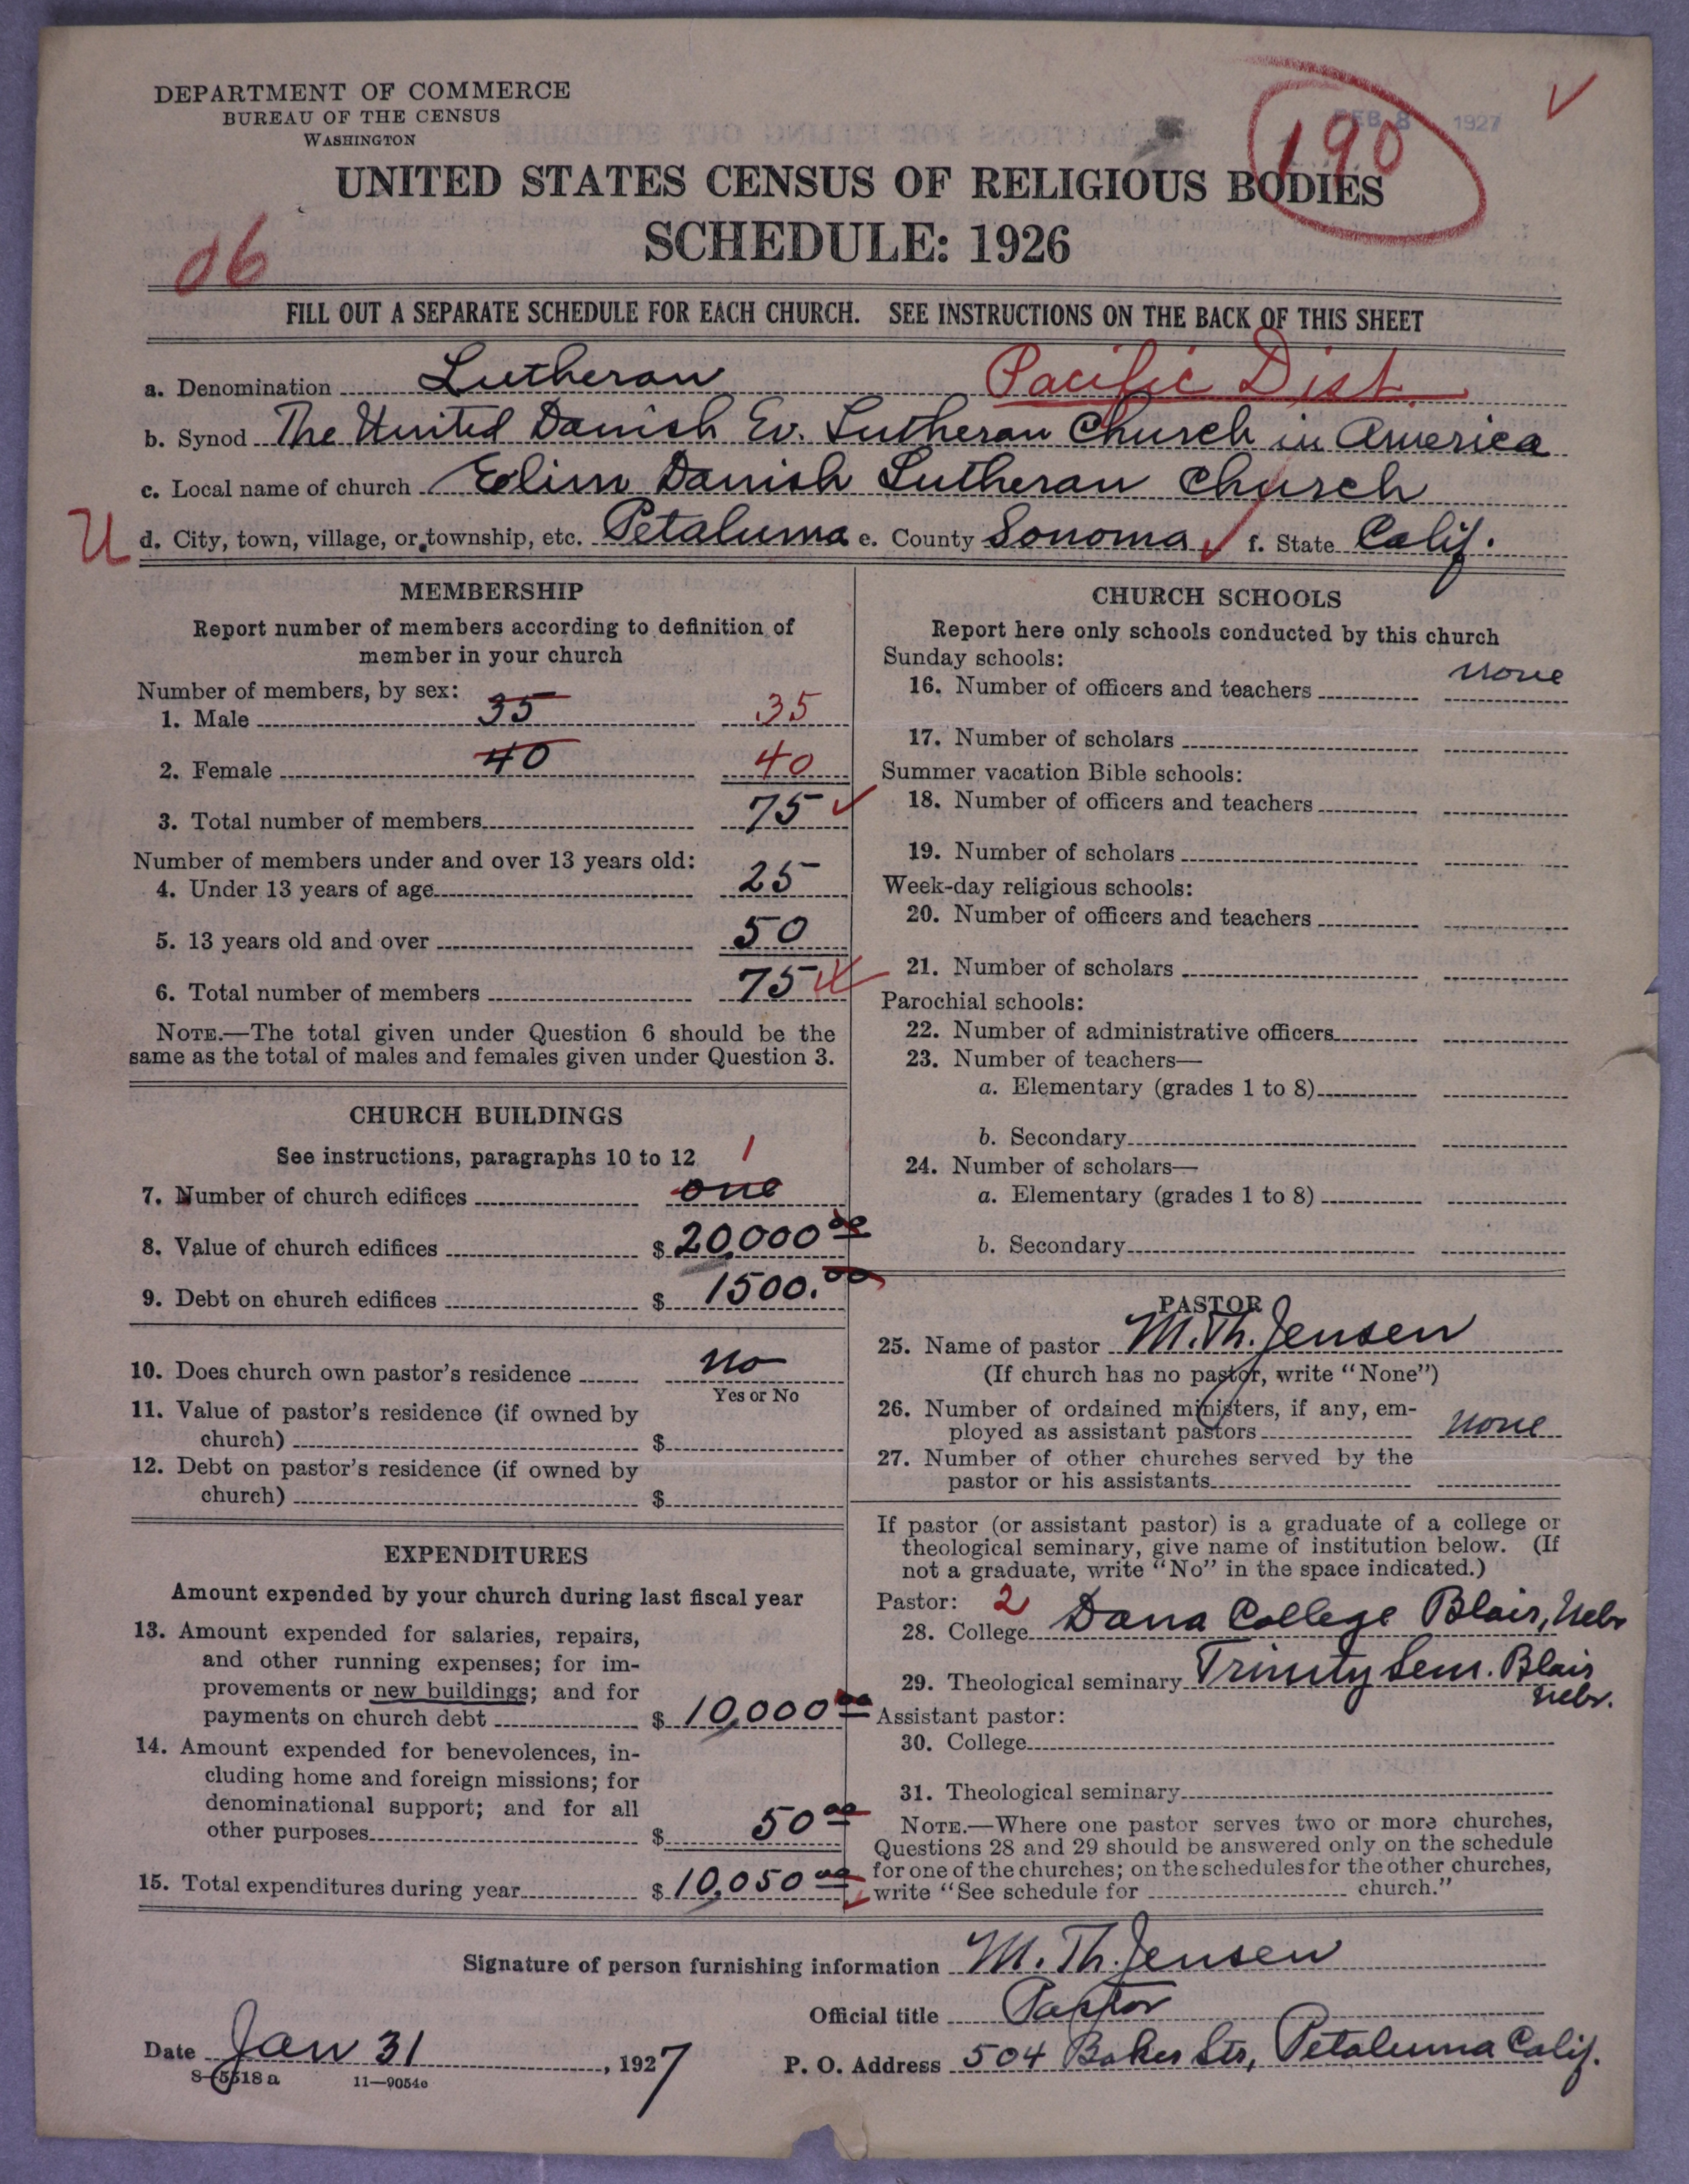 DEPARTMENT OF COMMERCE
BUREAU OF THE CENSUS
WASHINGTON
FEB 8 1927
190
UNITED STATES CENSUS OF RELIGIOUS BODIES
SCHEDULE: 1926
06
FILL OUT A SEPARATE SCHEDULE FOR EACH CHURCH. SEE INSTRUCTIONS ON THE BACK OF THIS SHEET
a. Denomination Lutheran Pacific Dist.
b. Synod The United Danish Ev. Lutheran Church in America
c. Local name of church Elim Danish Lutheran Church
U d. City, town, village, or township, etc. Petaluma e. County Sonoma f. State Calif.
MEMBERSHIP
Report number of members according to definition of
member in your church
Number of members, by sex:
1. Male 35 35
2. Female 40 40
3. Total number of members 75
Number of members under and over 13 years old:
4. Under 13 years of age 25
5. 13 years old and over 50
6. Total number of members 75
NOTE.—The total given under Question 6 should be the
same as the total of males and females given under Question 3.
CHURCH BUILDINGS
See instructions, paragraphs 10 to 12
1
7. Number of church edifices one
8. Value of church edifices $ 20,000 00
9. Debt on church edifices $ 1500.00
10. Does church own pastor's residence No
Yes or No
11. Value of pastor's residence (if owned by
church) $
12. Debt on pastor's residence (if owned by
church) $
EXPENDITURES
Amount expended by your church during last fiscal year
13. Amount expended for salaries, repairs,
and other running expenses; for im-
provements or new buildings; and for
payments on church debt $ 10,000 00
14. Amount expended for benevolences, in-
cluding home and foreign missions; for
denominational support; and for all
other purposes $ 50 00
15. Total expenditures during year $ 10,050 00
CHURCH SCHOOLS
Report here only schools conducted by this church
Sunday schools:
16. Number of officers and teachers none
17. Number of scholars
Summer vacation Bible schools:
18. Number of officers and teachers
19. Number of scholars
Week-day religious schools:
20. Number of officers and teachers
21. Number of scholars
Parochial schools:
22. Number of administrative officers
23. Number of teachers—
a. Elementary (grades 1 to 8)
b. Secondary
24. Number of scholars—
a. Elementary (grades 1 to 8)
b. Secondary
PASTOR
25. Name of pastor M. Th. Jensen
(If church has no pastor, write "None")
26. Number of ordained ministers, if any, em-
ployed as assistant pastors none
27. Number of other churches served by the
pastor or his assistants
If pastor (or assistant pastor) is a graduate of a college or
theological seminary, give name of institution below. (If
not a graduate, write "No" in the space indicated.)
Pastor: 2
28. College Dana College Blair, Nebr
29. Theological seminary Trinity Sem. Blair
Nebr.
Assistant pastor:
30. College
31. Theological seminary
NOTE.—Where one pastor serves two or more churches,
Questions 28 and 29 should be answered only on the schedule
for one of the churches; on the schedules for the other churches,
write "See schedule for church."
Signature of person furnishing information M. Th. Jensen
Official title Pastor
Date Jan 31, 1927
P. O. Address 504 Baker Str, Petaluma Calif.
8-5518 a 11—9054c